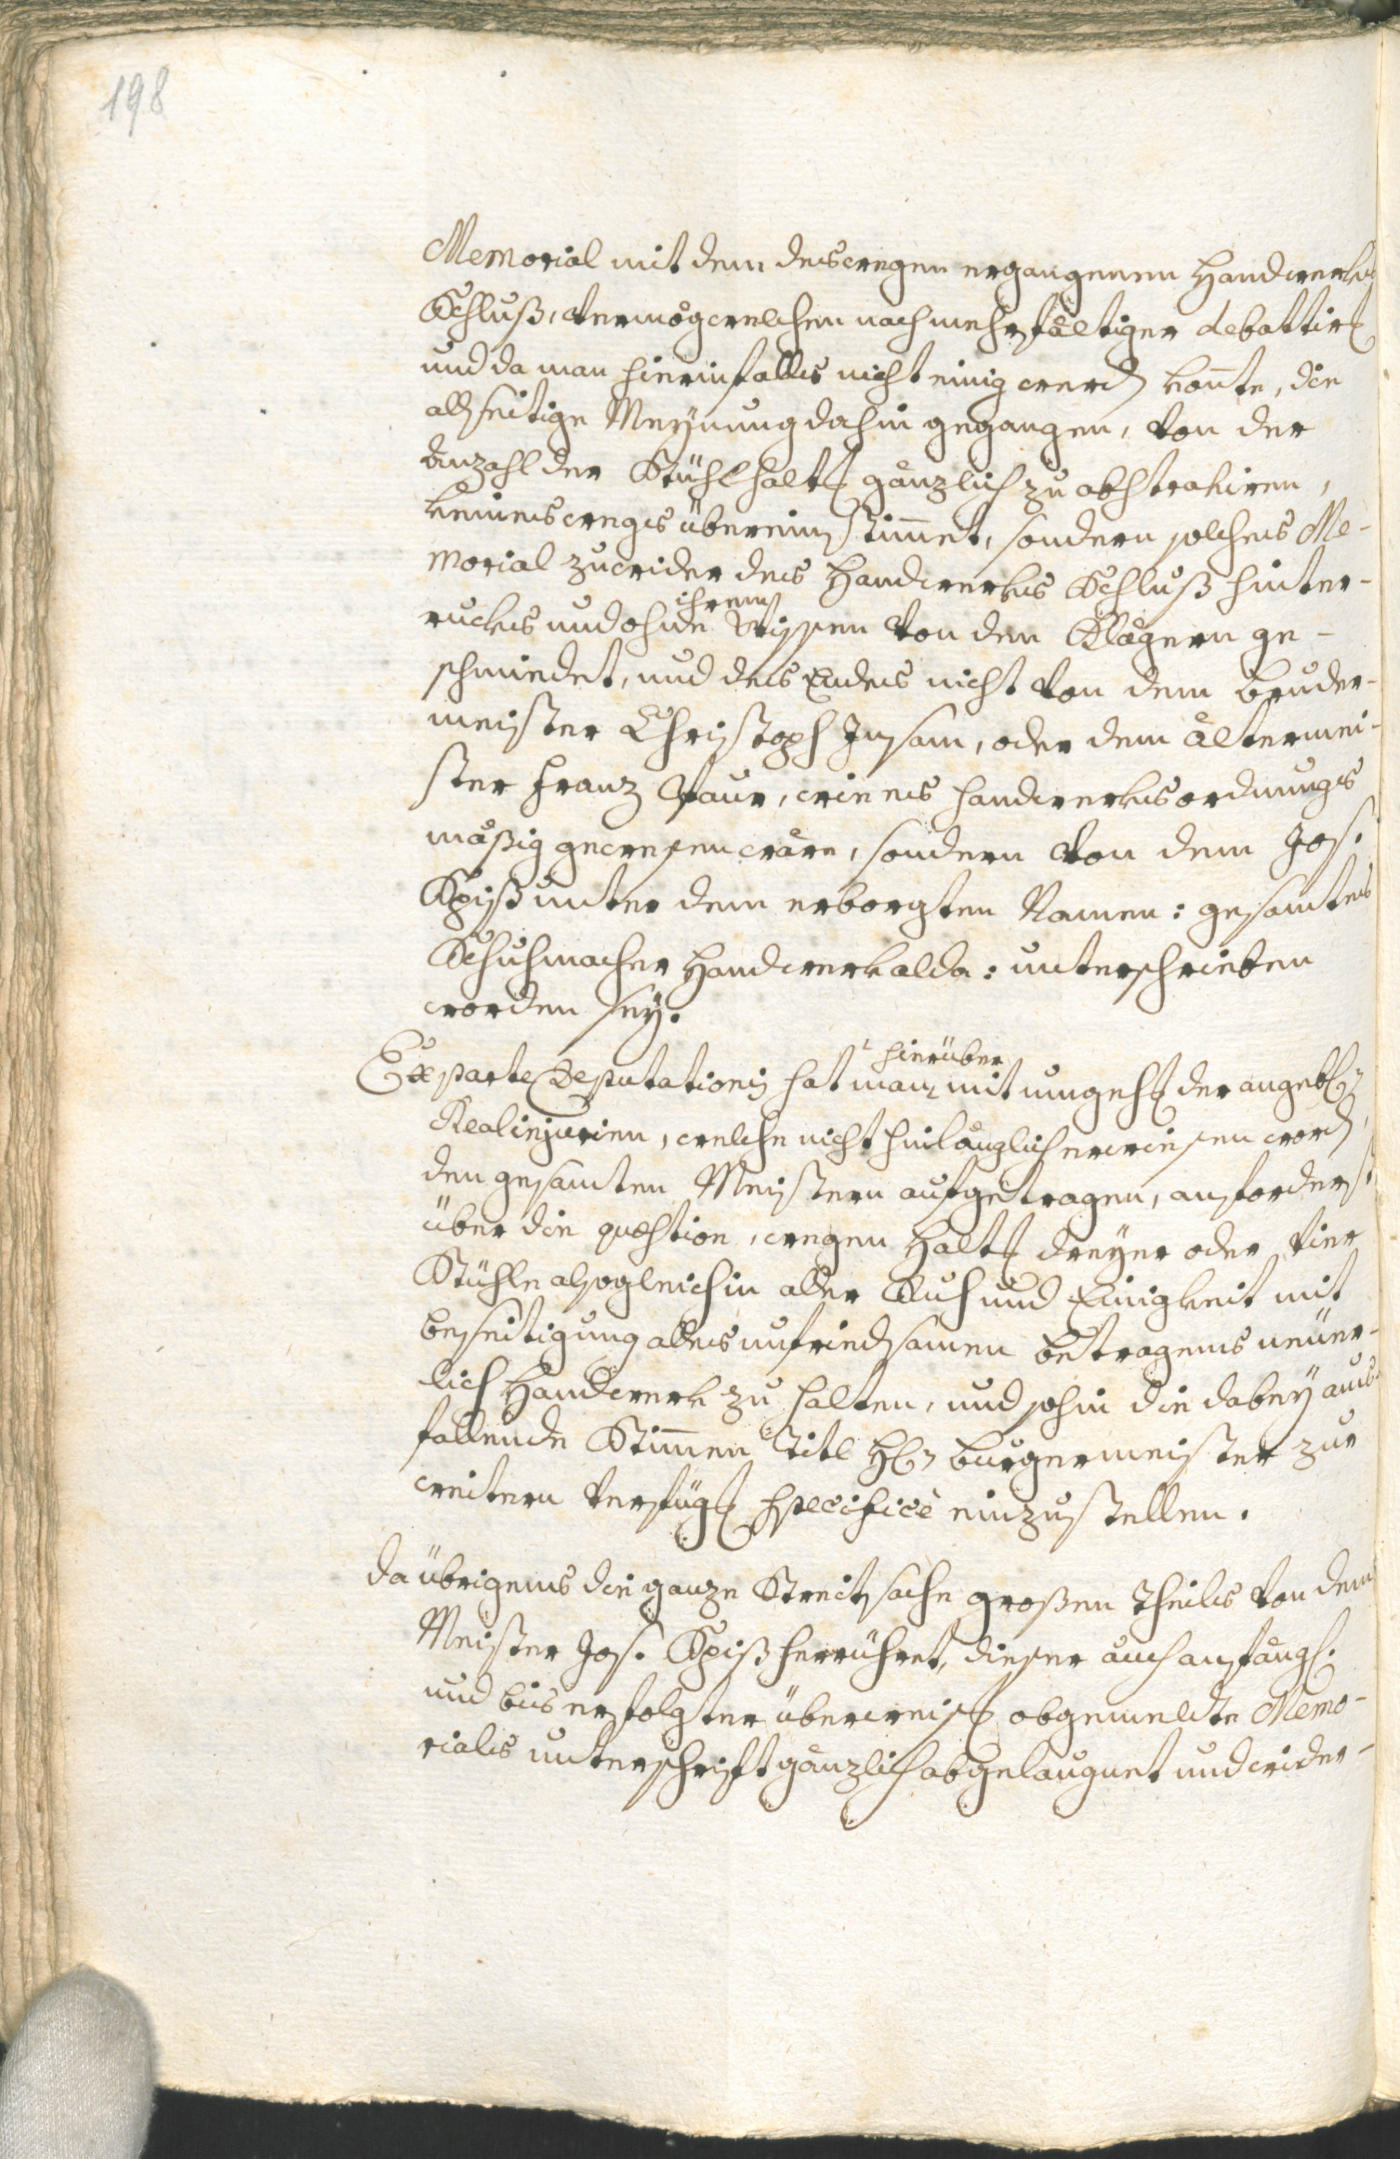 198
Memorial mit dem deswegen ergangenen Handwerks
Schluß, vermög welchen nach mehrfältiger debattir
und da man hierinfalls nicht einig werd konnte, die
allseitige Meynung dahin gegangen, von der
Anzahl der Stühl halt gänzlich zu abstrahiren,
keineswegs übereinstimmet, sondern solches Me-
morial zuwider des Handwerks Schluß hinter-
rucks und ohne ihrem Wissen von den Klägern ge-
schmiedet, und des Endes nicht von dem Bruder-
meister Christoph Insam, oder dem Altermei-
ster Franz Paur, wie es handwerksordnungs
mäßig gewesen wäre, sondern von dem Jos.
Spiß unter dem erborgten Namen: gesamtes
Schuhmacher Handwerk alda: unterschrieben
worden sey.
Ex parte Deputationis hat man hierüber mit umgeh der angebl
Realinjurien, welche nicht hinlänglich erwiesen word,
den gesamten Meistern aufgetragen, anforderst
über die quæstion, wegen Halt dreyer oder vier
Stühle alsogleich in aller Ruh und Einigkeit mit
beseitigung alles unfriedsamen betragens neüer-
lich Handwerk zu halten, und sohin die dabey aus
fallende Stimmen Titl H burgermeister zur
weitern verfüg specificè einzustellen.
Da übrigens die ganze Streitsache großen Theils von dem
Meister Jos. Spiß herrühret, dieser auch anfangs.
und bis erfolgter überweis obgemeldte Memo-
rials unterschrift gänzlich abgelaugnet und wider-